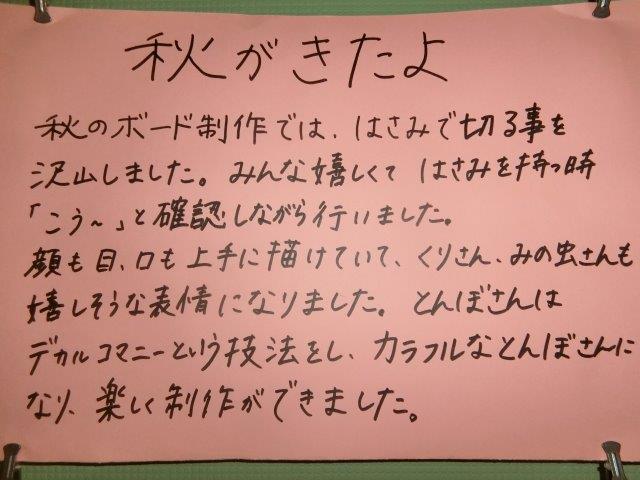 秋がきたよ
秋のボード制作では、はさみで切る事を
沢山しました。みんな嬉しくて はさみを持つ時
「こう〜」と確認しながら行いました。
顔も目、口も上手に描けていて、くりさん、みの虫さんも
嬉しそうな表情になりました。とんぼさんは
デカルコマニーという技法をし、カラフルなとんぼさんに
なり、楽しく制作ができました。